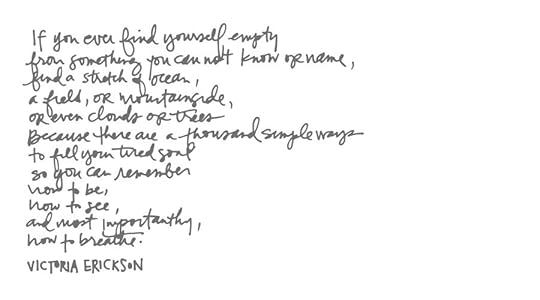 If you ever find yourself empty
from something you cannot know or name,
find a stretch of ocean,
a field, or mountainside,
or even clouds or trees
Because there are a thousand simple ways
to fill your tired soul
so you can remember
how to be,
how to see,
and most importantly,
how to breathe.
VICTORIA ERICKSON